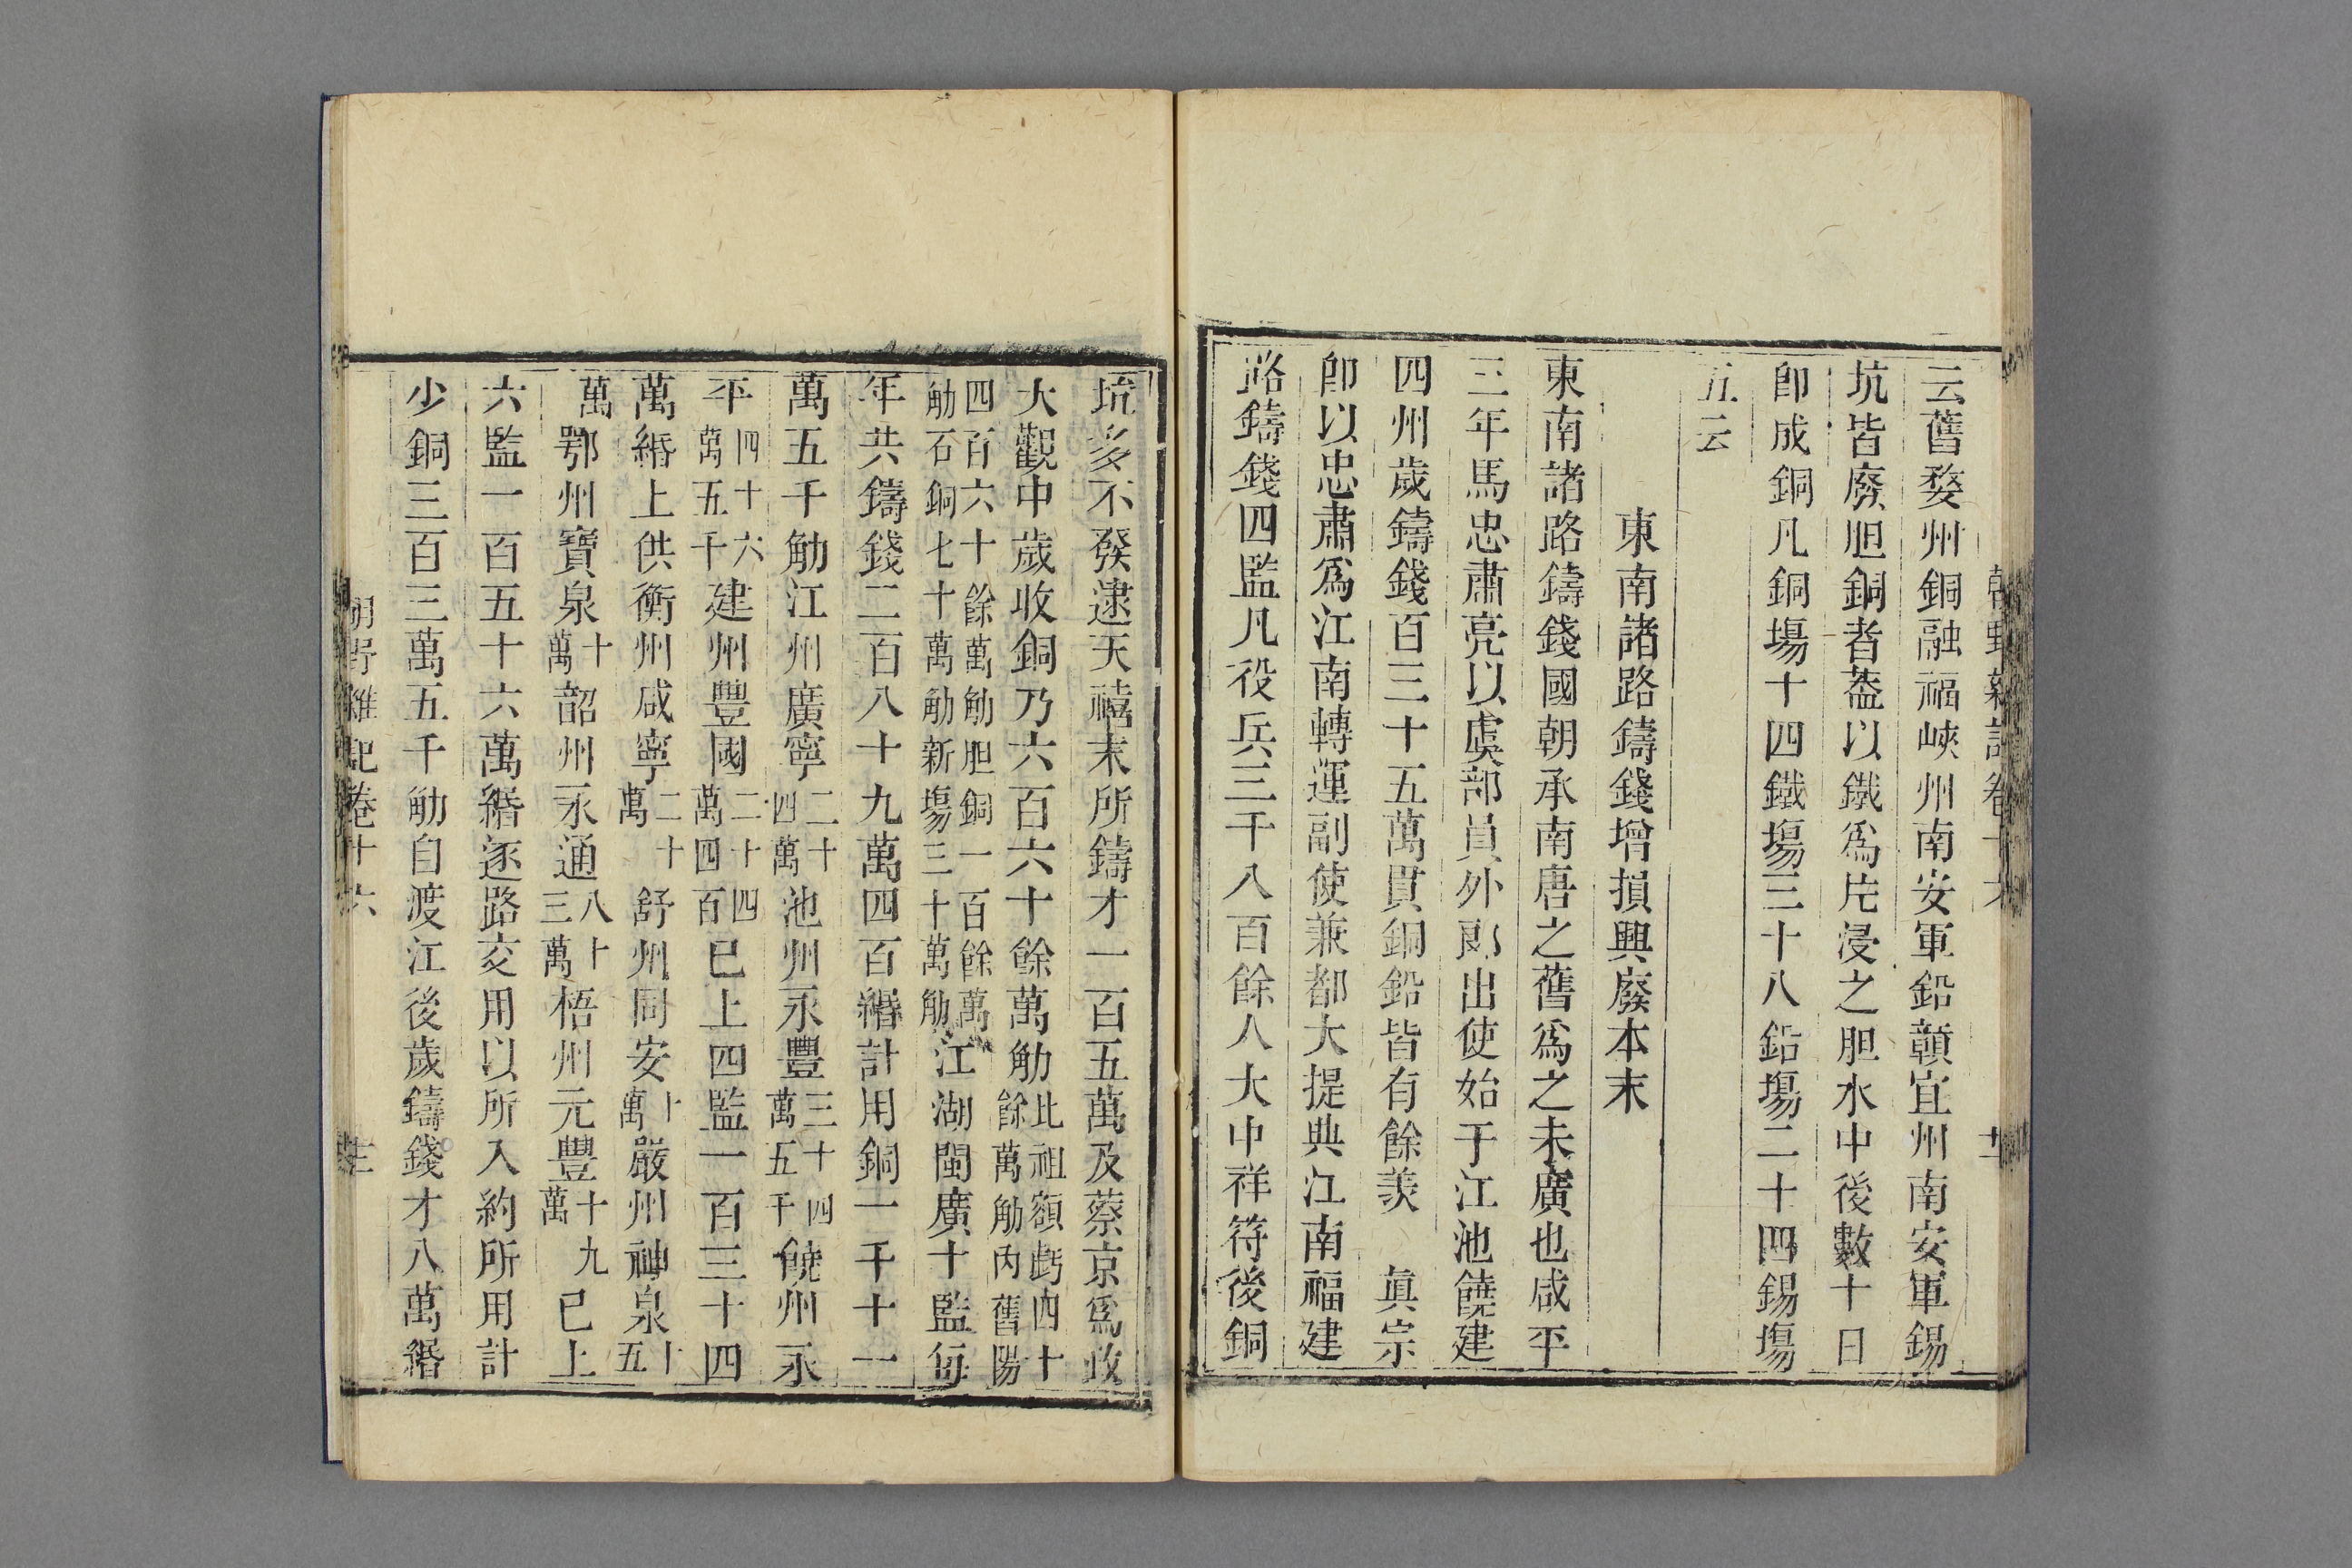 云舊婺州銅融福峽州南安軍鉛贑宜州南安軍錫
坑皆廢胆銅者葢以鐵爲片浸之胆水中後數十日
卽成銅凡銅塲十四鐵塲三十八鉛塲二十四錫塲
五云
東南諸路鑄錢增損興廢本末
東南諸路鑄錢國朝承南唐之舊爲之未廣也咸平
三年馬忠肅亮以虞部員外郞出使始于江池饒建
四州歲鑄錢百三十五萬貫銅鉛皆有餘羨 眞宗
卽以忠肅爲江南轉運副使兼都大提典江南福建
路鑄錢四監凡役兵三千八百餘人大中祥符後銅
坑多不發逮天禧末所鑄才一百五萬及蔡京爲政
大觀中歲收銅乃六百六十餘萬觔比祖額虧四十餘萬觔内舊陽
四百六十餘萬觔胆銅一百餘萬觔石銅七十萬觔新塲三十萬觔江湖閩廣十監每
年共鑄錢二百八十九萬四百緡計用銅一千十一
萬五千觔江州廣寧二十四萬池州永豐三十四萬五千饒州永
平四十六萬五千建州豐國二十四萬四百已上四監一百三十四
萬緡上供衡州咸寧二十萬舒州同安十萬嚴州神泉十五
萬鄂州寶泉十萬韶州永通八十三萬梧州元豐十九萬已上
六監一百五十六萬緡逐路交用以所入約所用計
少銅三百三萬五千觔自渡江後歲鑄錢才八萬緡
朝野雜記卷十六